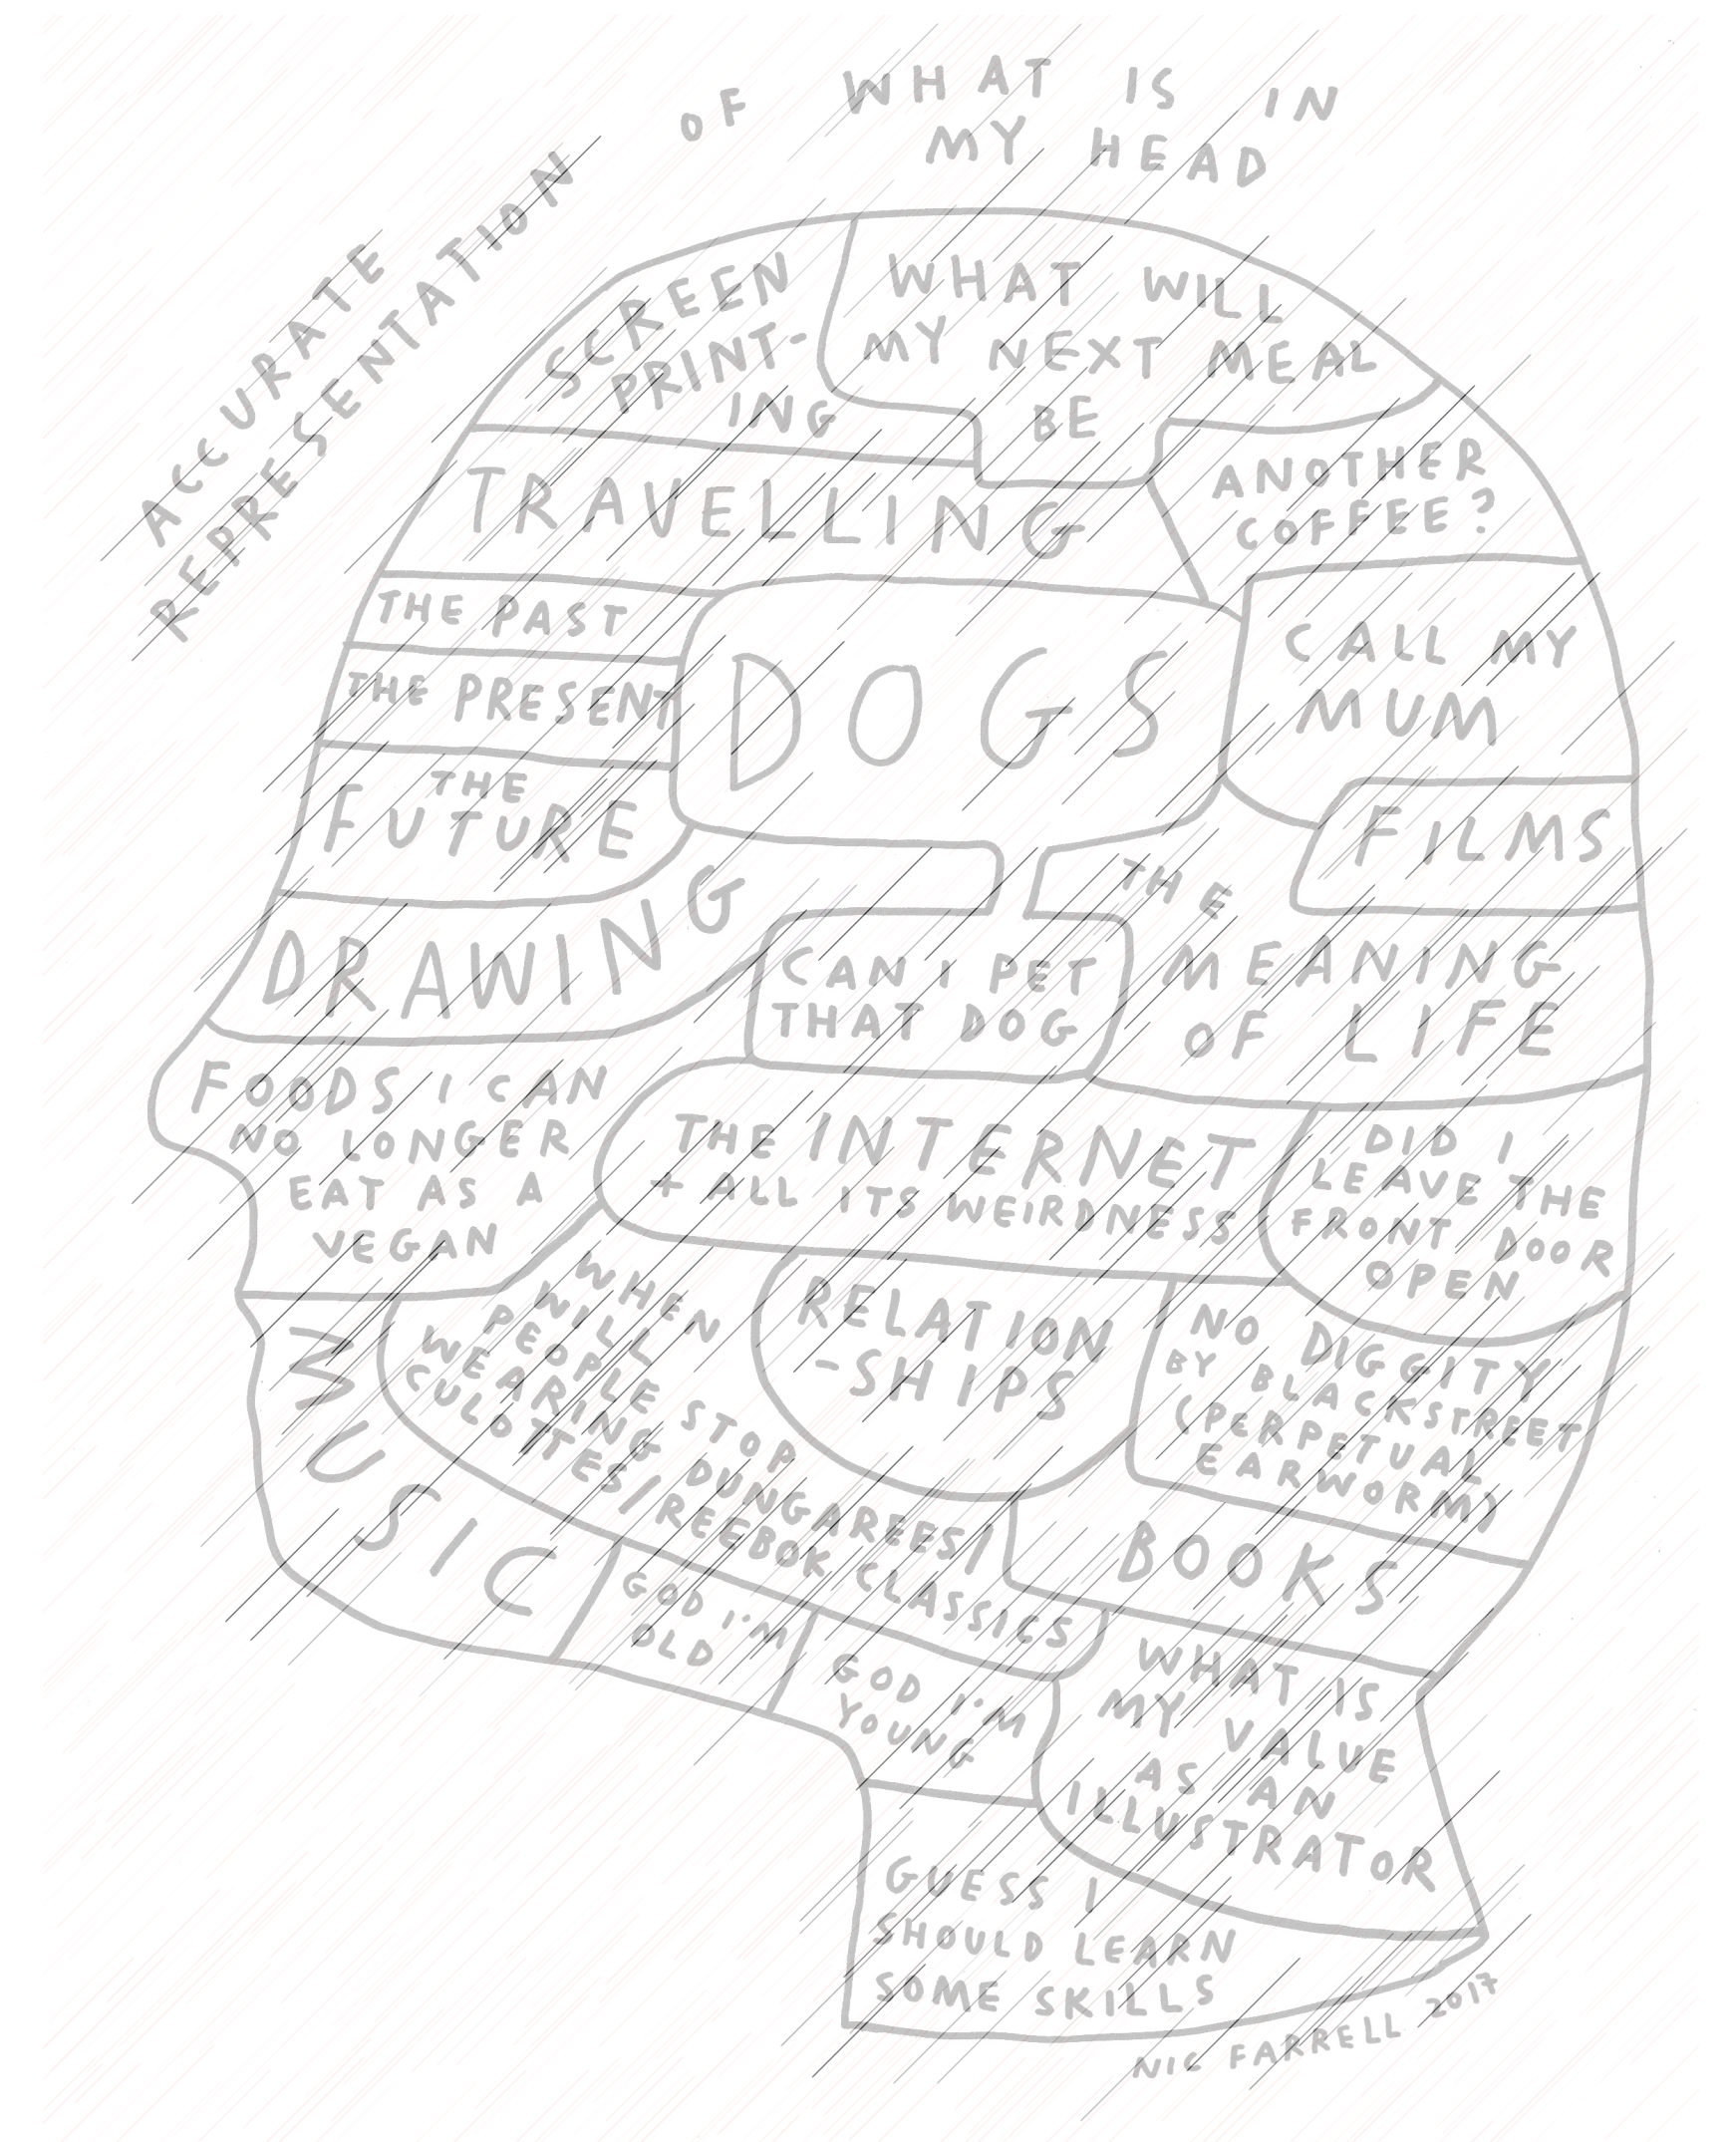 ACCURATE
REPRESENTATION
OF WHAT IS IN
MY HEAD
SCREEN
PRINT-
ING
WHAT WILL
MY NEXT MEAL
BE
TRAVELLING
ANOTHER
COFFEE?
THE PAST
THE PRESENT
THE
FUTURE
DOGS
CALL MY
MUM
FILMS
DRAWING
CAN I PET
THAT DOG
THE
MEANING
OF LIFE
FOODS I CAN
NO LONGER
EAT AS A
VEGAN
THE INTERNET
+ ALL ITS WEIRDNESS
DID I
LEAVE THE
FRONT DOOR
OPEN
MUSIC
WHEN
WILL
PEOPLE STOP
WEARING DUNGAREES/
CULOTTES/REEBOK CLASSICS
RELATION
-SHIPS
NO DIGGITY
BY BLACKSTREET
(PERPETUAL
EARWORM)
BOOKS
GOD I'M
OLD
GOD I'M
YOUNG
WHAT IS
MY VALUE
AS AN
ILLUSTRATOR
GUESS I
SHOULD LEARN
SOME SKILLS
NIC FARRELL 2017